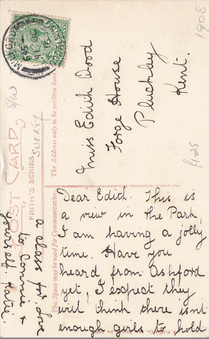 1908
S/ND
SURREY
4.25
POST CARD
FRITH'S SERIES
The Address only to be written here
Miss Edith Wood
Forge House
Pluckley
Kent.
Dear Edith. This is
a view in the Park,
I am having a jolly
time. Have you
heard from Ashford
yet, I expect they
will think there isnt
enough girls to hold
a class for. Love
to Connie &
yourself. Katie.